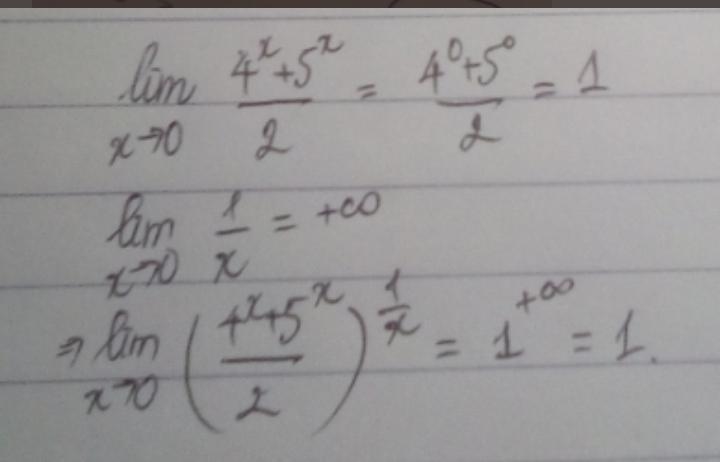 lim x→0 (4^x+5^x)/2 = (4^0+5^0)/2 = 1
lim x→0 1/x = +∞
⇒ lim x→0 ((4^x+5^x)/2)^(1/x) = 1^(+∞) = 1.